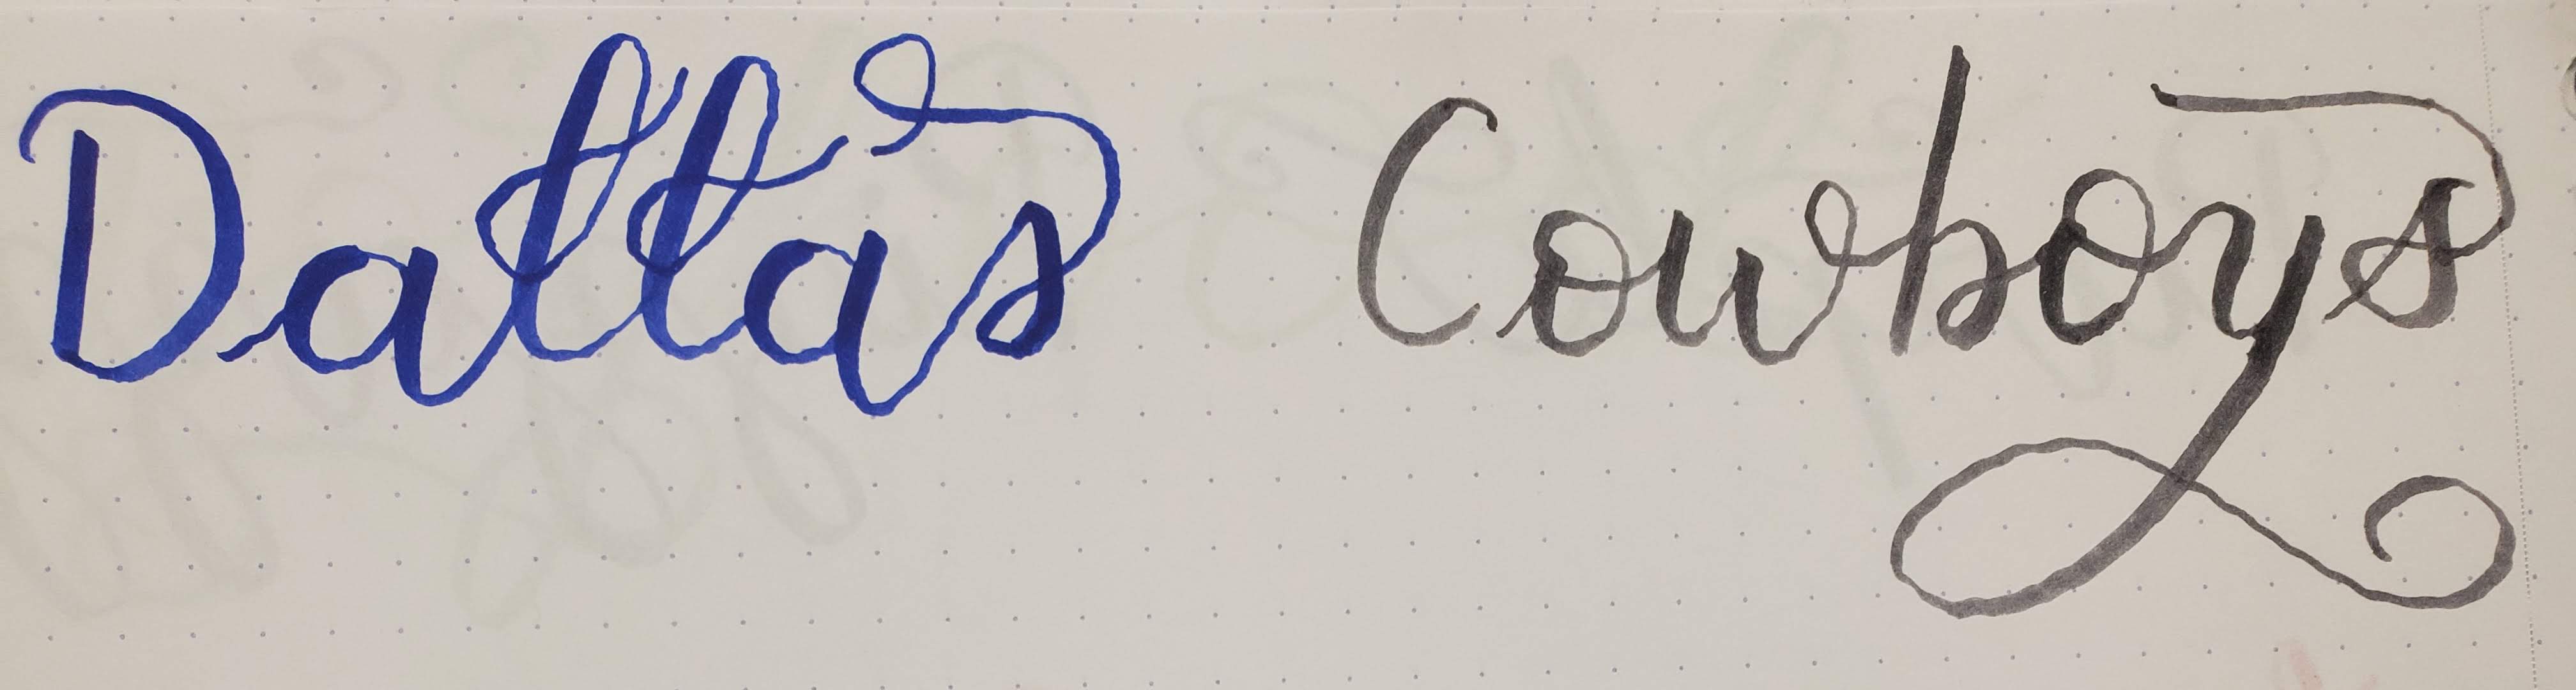 Dallas Cowboys